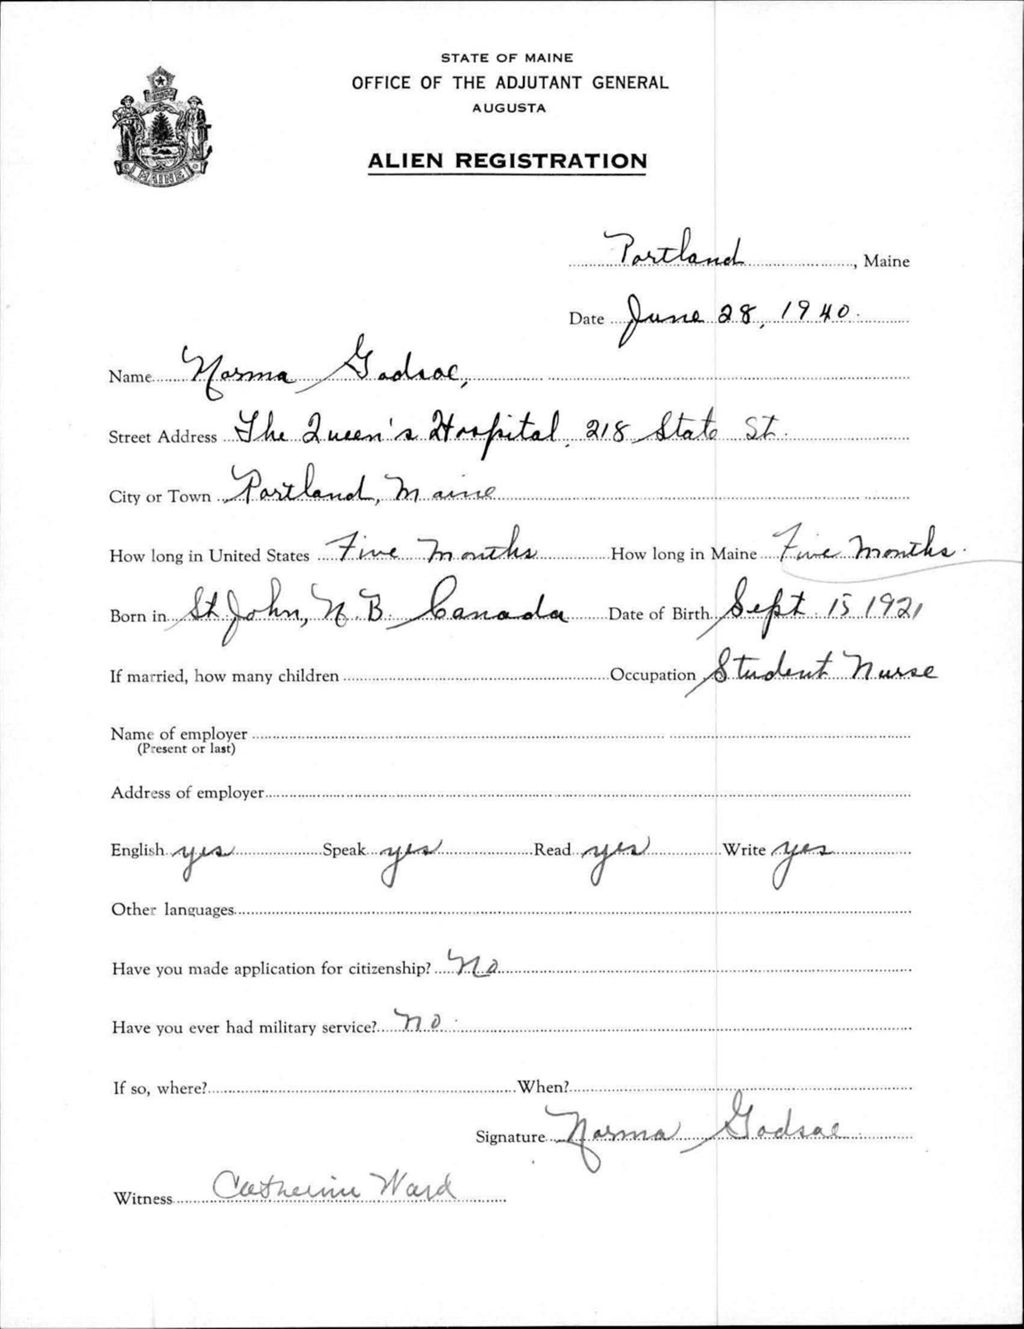 STATE OF MAINE
OFFICE OF THE ADJUTANT GENERAL
AUGUSTA
ALIEN REGISTRATION
MAINE
Portland, Maine
Date June 28, 1940.
Name Norma Godsoe,
Street Address The Queen's Hospital, 218 State St.
City or Town Portland, Maine
How long in United States Five Months How long in Maine Five Months.
Born in St. John, N.B. Canada Date of Birth Sept. 15 1921
If married, how many children Occupation Student Nurse
Name of employer
(Present or last)
Address of employer
English yes Speak yes Read yes Write yes
Other languages
Have you made application for citizenship? No
Have you ever had military service? no.
If so, where? When?
Signature Norma Godsoe
Witness Catherine Ward